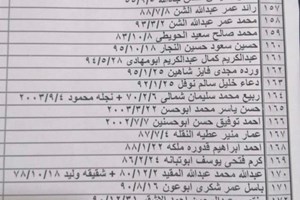 ١٥٧ رائد عمر عبدالله الشن ٨٨/٧/٨
١٥٨ محمد عمر عبدالله الشن ٩٣/٣/٢
١٥٩ محمد صالح سعيد الحويطي ٨٣/١٠/٨
١٦٠ حسين سعود حسين النجار ٩٥/١٠/١٨
١٦١ عبدالكريم كمال عبدالكريم ابومهادي ٩٤/٥/٢٨
١٦٢ ورده مجدي فايز شاهين ٩٥/١/٢٥
١٦٣ دعاء خليل سالم نوفل ٩٥/١/٢
١٦٤ ربيع محمد سليمان شمالي ٧٠/٢/٦ + نجله محمود ٢٠٠٣/٩/٤
١٦٥ حسن ياسر محمد ابوحسن ٢٠٠٣/٣/٢٢
١٦٦ احمد توفيق حسن ابوحنين ٢٠٠٢/٧/٧
١٦٧ عمار منير عطيه النقله ٨٧/٧/٤
١٦٨ احمد ابراهيم فدوره ملكه ٨٨/١/٢٢
١٦٩ كرم فتحي يوسف ابوتبانه ٨٦/٢/٢٤
١٧٠ عبدالله محمد عبدالله المقيد ٨٠/١٢/٢ + شقيقه وليد ٧٨/١٠/١٨
١٧١ باسل عمر شكري ابوعون ٩٠/٨/١٦